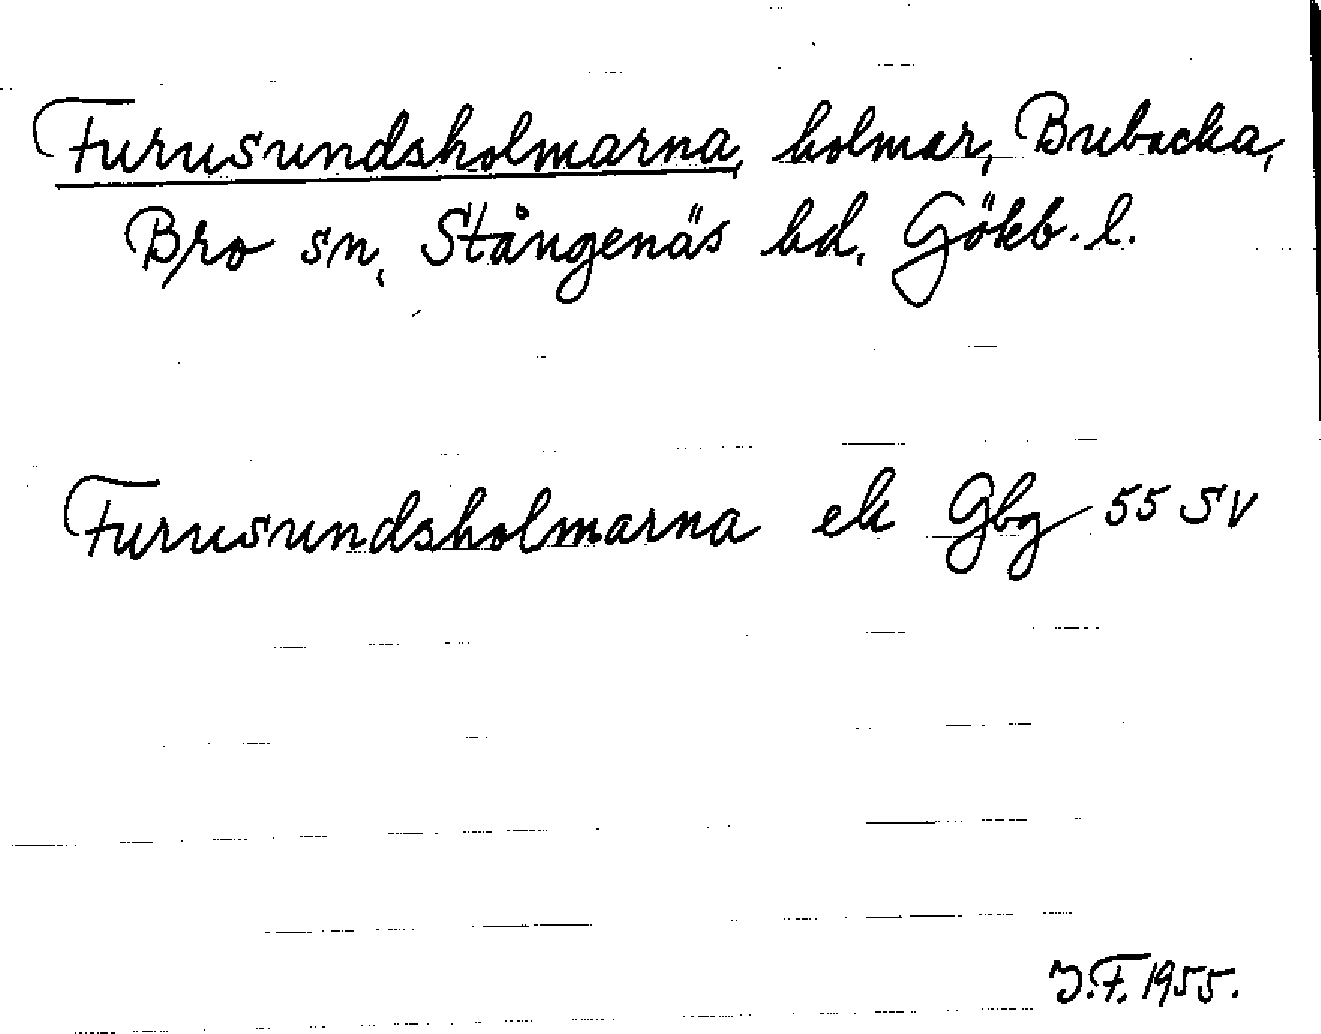 Furusundsholmarna, holmar, Brubacka,
Bro sn, Stångenäs hd, Gökb. l.
Furusundsholmarna ek Gbg 55 SV
J.F. 1955.